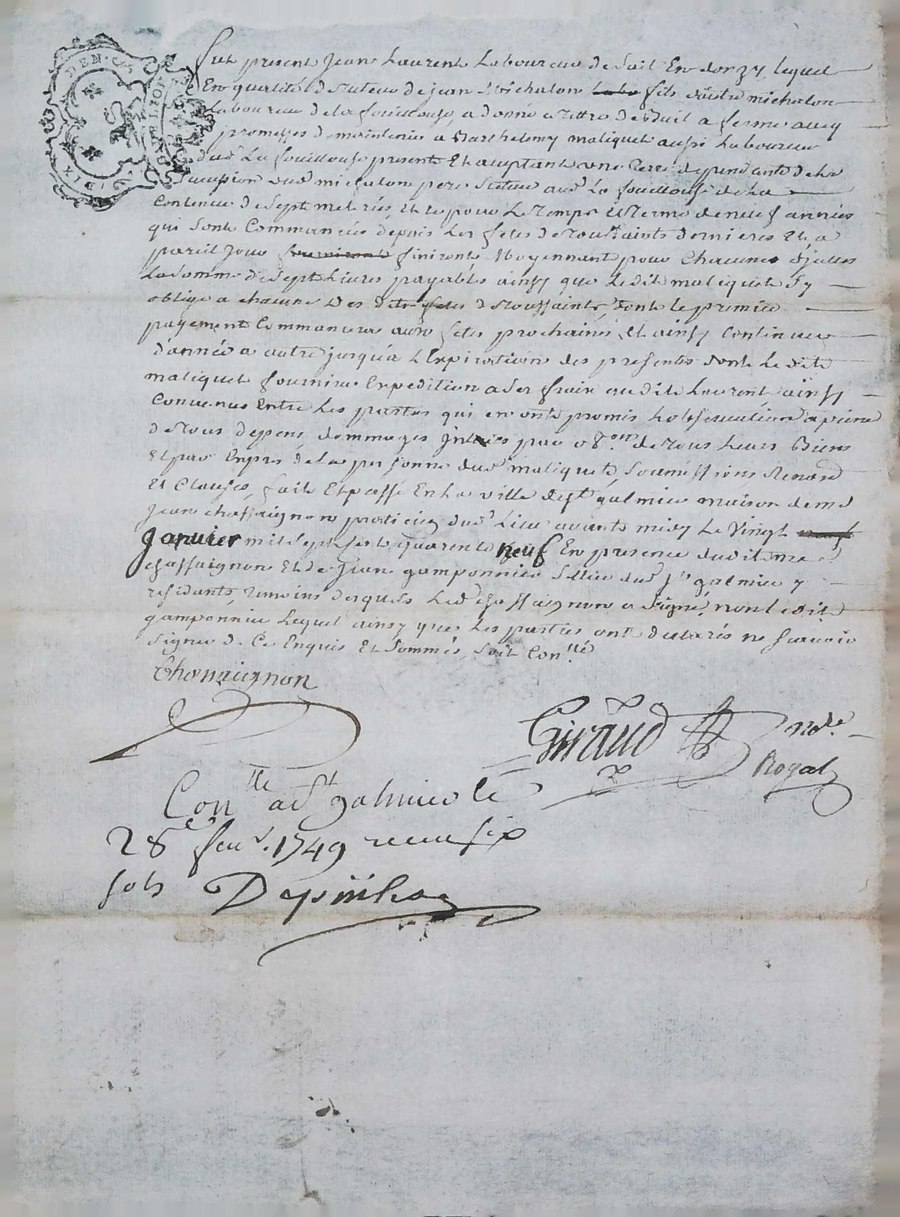 fut present Jean Laurent Laboureur de Sail En donzy, lequel
En qualité de tuteur de jean Michalon fils d'autre michalon
Laboureur de la fouillouse, a donné a titre de bail a ferme avec
promesses de maintenir a Barthelemy maliquet aussi Laboureur
dud La fouillouse present Et aceptant une Terre dependante de la
sucession dud michalon pere située aud La fouillouse de La
Contenue de Sept meterées, Et ce pour Le Temps Et Terme de neuf années
qui sont Commancées depuis Les fetes de toussaints dernieres Et a
pareil Jour finiront Moyennant pour Chacunes d'jcelles
La somme de Sept Livres payables ainsy que Ledit maliquet sy
oblige a chacune des dites fetes de toussaints, dont le premier
payement Commancera aux fetes prochaines, Et ainsy Continuer
d'année a autre jusqu'a L'Expiration des presentes dont Le dit
maliquet fournira Expedition a ses frais audit Laurent ainsy
Convenus Entre Les parties qui en ont promis Lobservation a peine
de tous depens dommages Jnterets par obon. de tous Leurs Biens
Et par Expres de La personne dud maliquet, soumissions Renond
Et Clauses, fait Et passé En La ville de st galmier maison de me
jean chassaignon praticien dud Lieu avant midy Le Vingt
Janvier mil sept cent quarente neuf En presence dudit me
chassaignon Et de Jean gamponnier dud st galmier y
residants, temoins desquels Led chassaignon a signé, non ledit
gamponnier Lequel ainsy que Les parties ont declarés ne scavoir
signer de Ce Enquis Et sommés, soit Conllé
Chassaignon
Giraud nore
Royal
Conlle a st galmier le
28e feuv. 1749 receu six
sols Depinhac